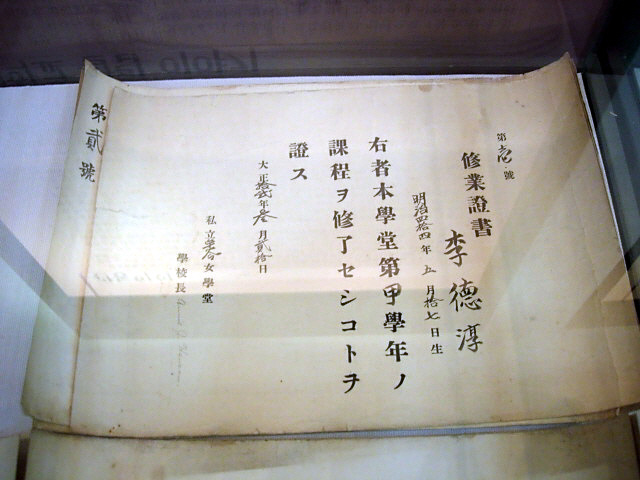 第壱號
修業證書
李德淳
明治四拾四年五月拾七日生
右者本學堂第甲學年ノ
課程ヲ修了セシコトヲ
證ス
大正拾弐年叄月貳拾日
私立 女學堂
學校長
第貳號